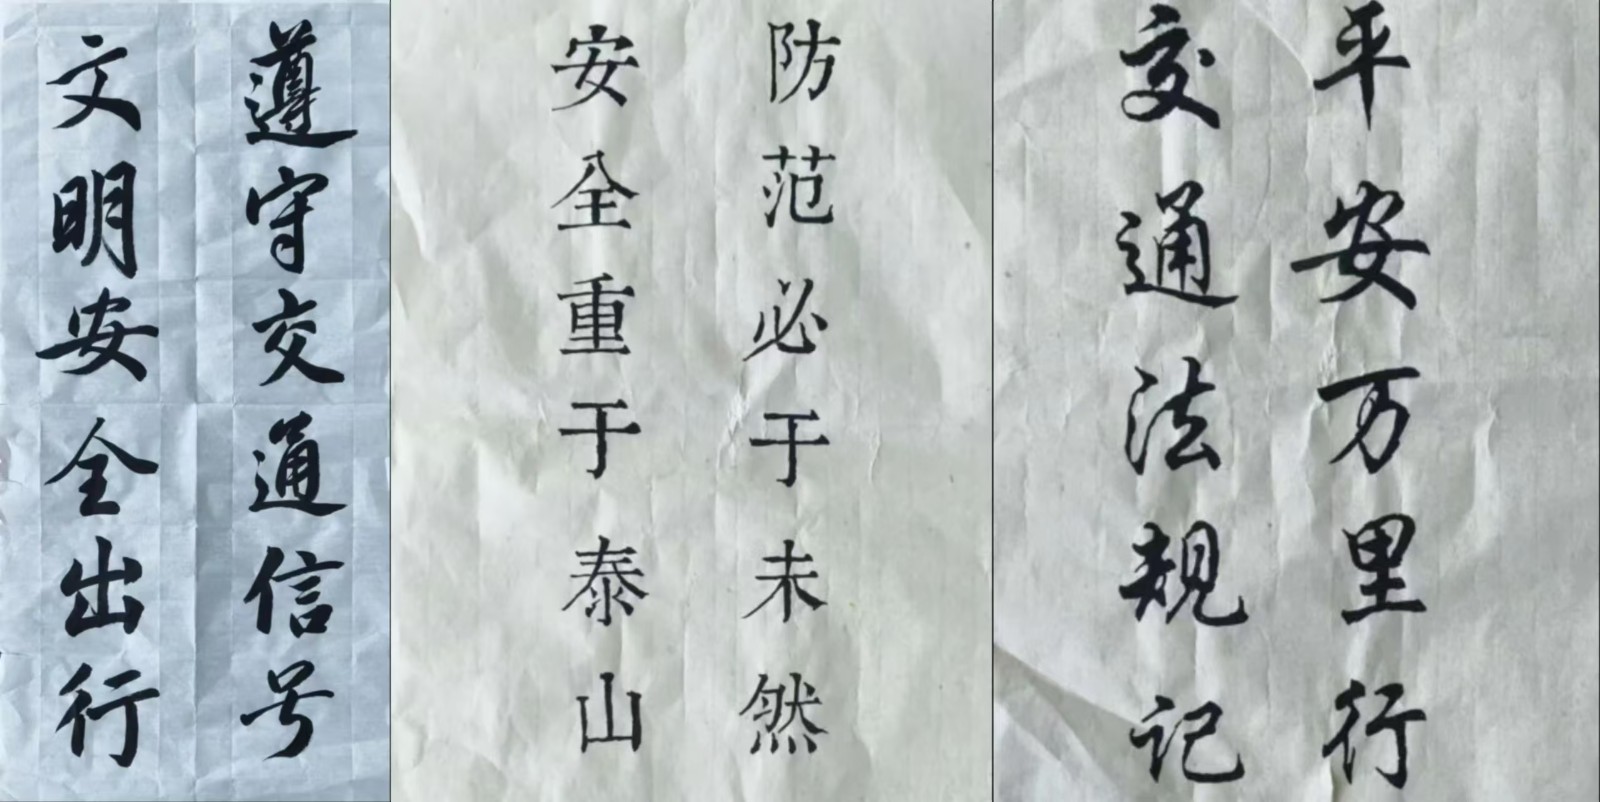 遵守交通信号
文明安全出行
防范必于未然
安全重于泰山
平安万里行
交通法规记